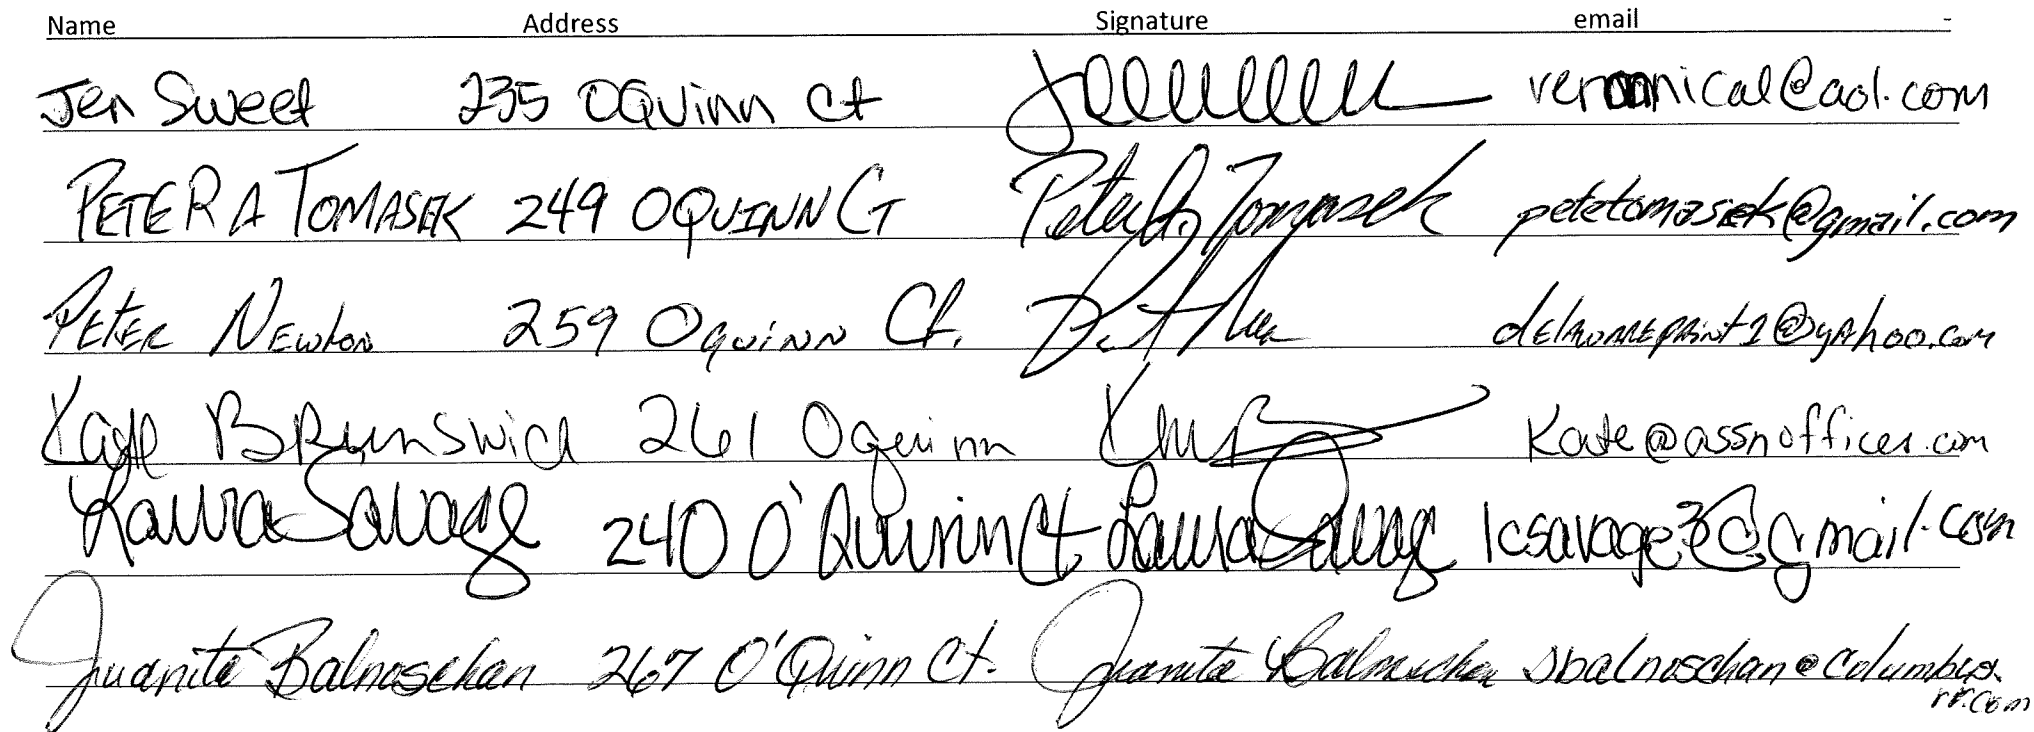 Name Address Signature email -
Jen Sweet 235 OQuinn Ct veronnical@aol.com
PETER A TOMASEK 249 OQUINN CT Peter A. Tomasek petetomasek@gmail.com
PETER NEWTON 259 OQUINN Ct. delawareprint1@yahoo.com
Kate BRunswick 261 Oquinn Kate@assnoffices.com
Laura Savage 240 O'Quinn Ct Laura Savage lcsavage3@gmail.com
Juanita Balnoschan 267 O'Quinn Ct. Juanita Balnoschan jbalnoschan@columbus.
rr.com